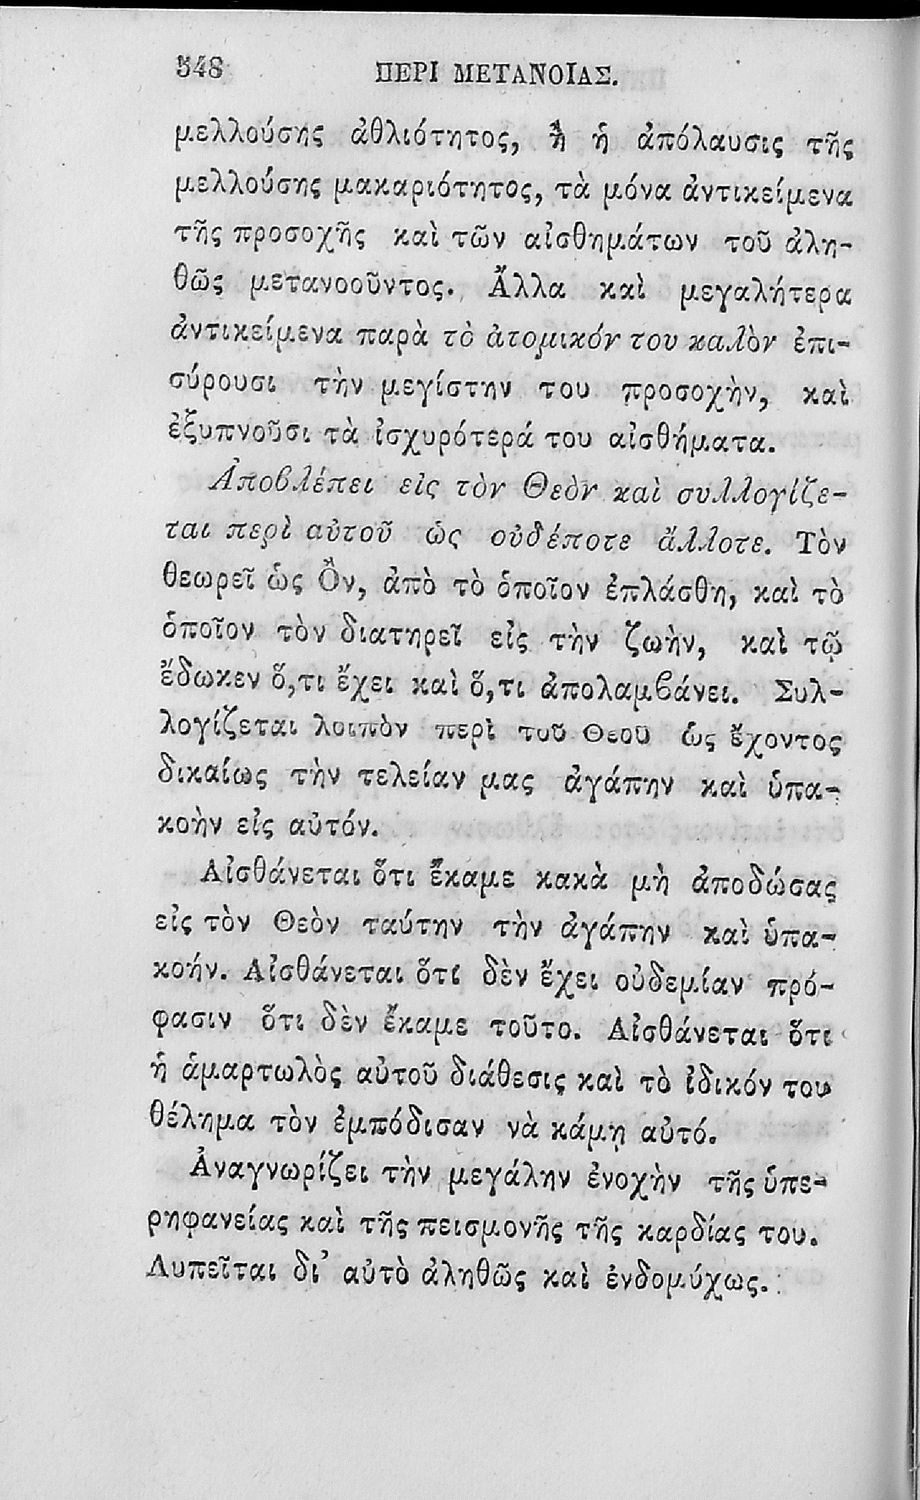 348 ΠΕΡΙ ΜΕΤΑΝΟΙΑΣ.
μελλούσης ἀθλιότητος, ἢ ἡ ἀπόλαυσις τῆς
μελλούσης μακαριότητος, τὰ μόνα ἀντικείμενα
τῆς προσοχῆς καὶ τῶν αἰσθημάτων τοῦ ἀλη-
θῶς μετανοοῦντος. Ἄλλα καὶ μεγαλήτερα
ἀντικείμενα παρὰ τὸ ἀτομικόν του καλὸν ἐπι-
σύρουσι τὴν μεγίστην του προσοχὴν, καὶ
ἐξυπνοῦσι τὰ ἰσχυρότερά του αἰσθήματα.
Ἀποβλέπει εἰς τὸν Θεὸν καὶ συλλογίζε-
ται περὶ αὐτοῦ ὡς οὐδέποτε ἄλλοτε. Τὸν
θεωρεῖ ὡς Ὂν, ἀπὸ τὸ ὁποῖον ἐπλάσθη, καὶ τὸ
ὁποῖον τὸν διατηρεῖ εἰς τὴν ζωὴν, καὶ τῷ
ἔδωκεν ὅ,τι ἔχει καὶ ὅ,τι ἀπολαμβάνει. Συλ-
λογίζεται λοιπὸν περὶ τοῦ Θεοῦ ὡς ἔχοντος
δικαίως τὴν τελείαν μας ἀγάπην καὶ ὑπα-
κοὴν εἰς αὐτόν.
Αἰσθάνεται ὅτι ἔκαμε κακὰ μὴ ἀποδώσας
εἰς τὸν Θεὸν ταύτην τὴν ἀγάπην καὶ ὑπα-
κοήν. Αἰσθάνεται ὅτι δὲν ἔχει οὐδεμίαν πρό-
φασιν ὅτι δὲν ἔκαμε τοῦτο. Αἰσθάνεται ὅτι
ἡ ἁμαρτωλὸς αὐτοῦ διάθεσις καὶ τὸ ἰδικόν του
θέλημα τὸν ἐμπόδισαν νὰ κάμῃ αὐτό.
Ἀναγνωρίζει τὴν μεγάλην ἐνοχὴν τῆς ὑπε-
ρηφανείας καὶ τῆς πεισμονῆς τῆς καρδίας του.
Λυπεῖται δι᾽ αὐτὸ ἀληθῶς καὶ ἐνδομύχως.